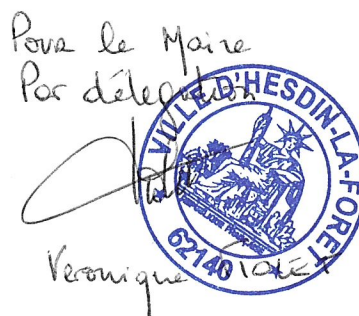 Pour le Maire
Par délégation
VILLE D'HESDIN-LA-FORÊT
62140
Veronique